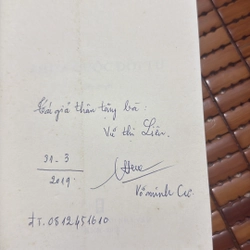 Tác giả thân tặng bà:
Vũ thị Liên.
31-3
2019.
Võ Minh
ĐT. 0812451610